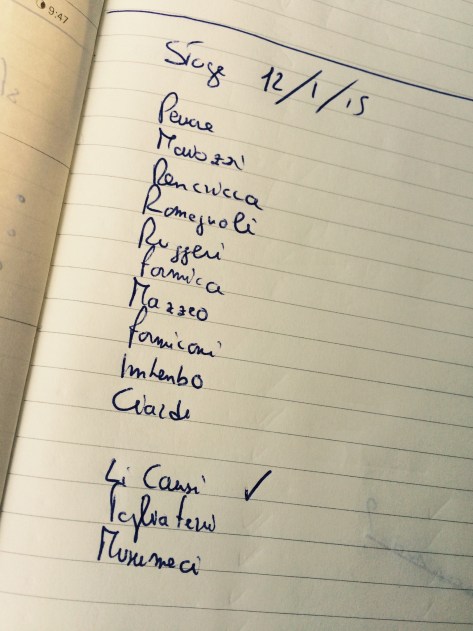 9:47
Stage 12/1/15
Penare
Marozzi
Rencricca
Romagnoli
Ruggeri
Formica
Mazzeo
Formiconi
Imtenbo
Cialde
Li Causi ✓
Tagliaferri
Musumeci